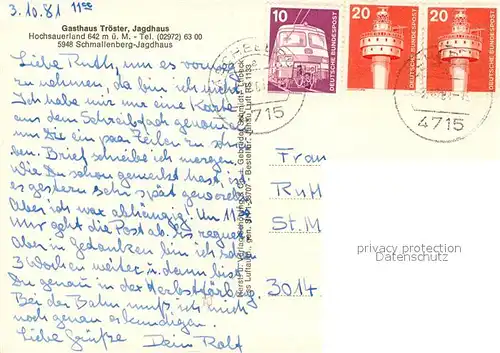 3.10.81 11°°
Gasthaus Tröster, Jagdhaus
Hochsauerland 642 m ü. M. - Tel. (02972) 63 00
5948 Schmallenberg-Jagdhaus
Liebe Ruth, um es vorweg
zu nehmen, da bin ich nicht.
Ich habe mir nur eine Karte
aus dem Schreibfach genommen
um Dir ein paar Zeilen zu schrei-
ben. Brief schreibe ich morgen.
Wie Du schon gemerkt hast, ist
es gestern sehr spät geworden.
Aber ich war abhängig! Um 11³⁰
Uhr geht die Post ab. Es regnet
Aber in Gedanken bin ich schon
3 Wochen weiter u. dann bist
Du genau in der
Bei der Bahn muß ich mich
noch genau erkundigen.
Liebe Grüße Dein Rolf
10
DEUTSCHE BUNDESPOST
20
DEUTSCHE BUNDESPOST
20
DEUTSCHE BUNDESPOST
4715
4715
Frau
Ruth
St. M
3014
privacy protection
Datenschutz